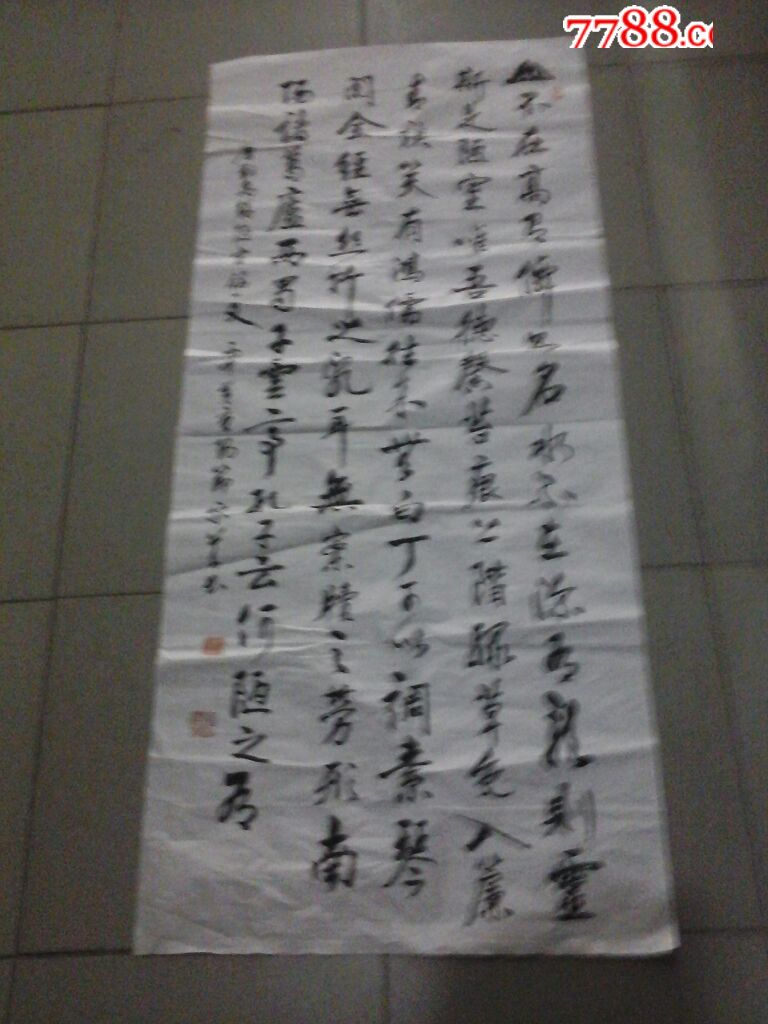 7788.c
山不在高有僊則名水不在深有龍則靈
斯是陋室唯吾德馨苔痕上階綠草色入簾
青談笑有鴻儒往來無白丁可以調素琴
閱金經無絲竹之亂耳無案牘之勞形南
陽諸葛廬西蜀子雲亭孔子云何陋之有
唐劉禹錫陋室銘一文